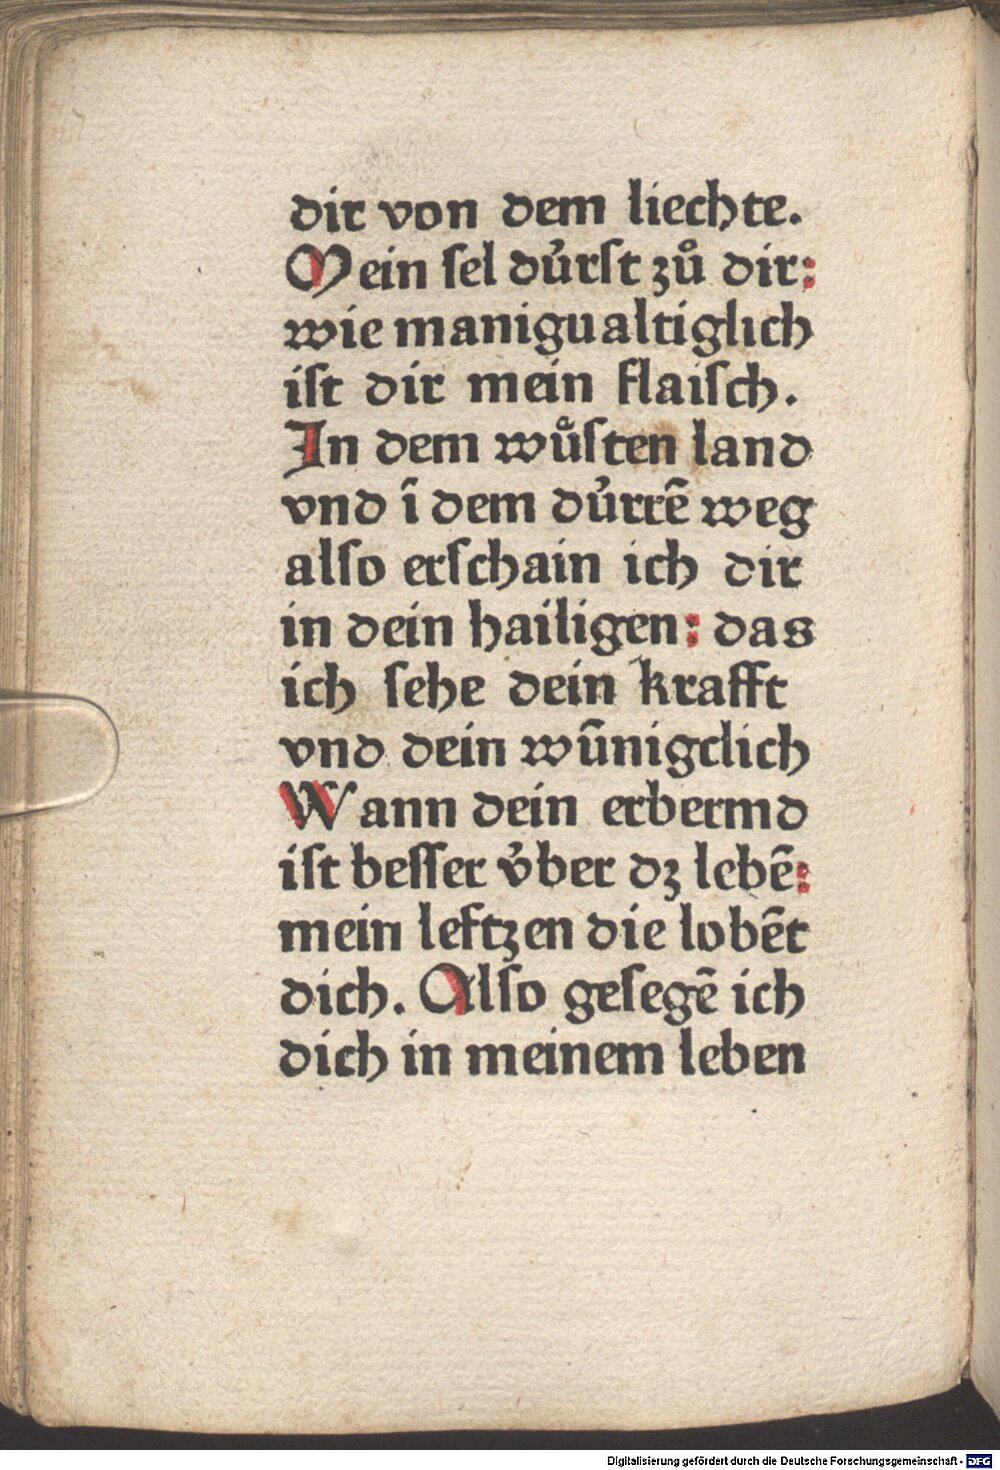 dir von dem liechte.
Mein sel dúrſt zů dir:
wie manigualtiglich
iſt dir mein flaiſch.
In dem wůſten land
vnd ī dem dúrrē weg
alſo erſchain ich dir
in dein hailigen: das
ich ſehe dein krafft
vnd dein wūnigclich
Wann dein erbermd
iſt beſſer v́ber dz lebē:
mein leftzen die lobēt
dich. Alſo geſegē ich
dich in meinem leben
Digitalisierung gefördert durch die Deutsche Forschungsgemeinschaft - DFG